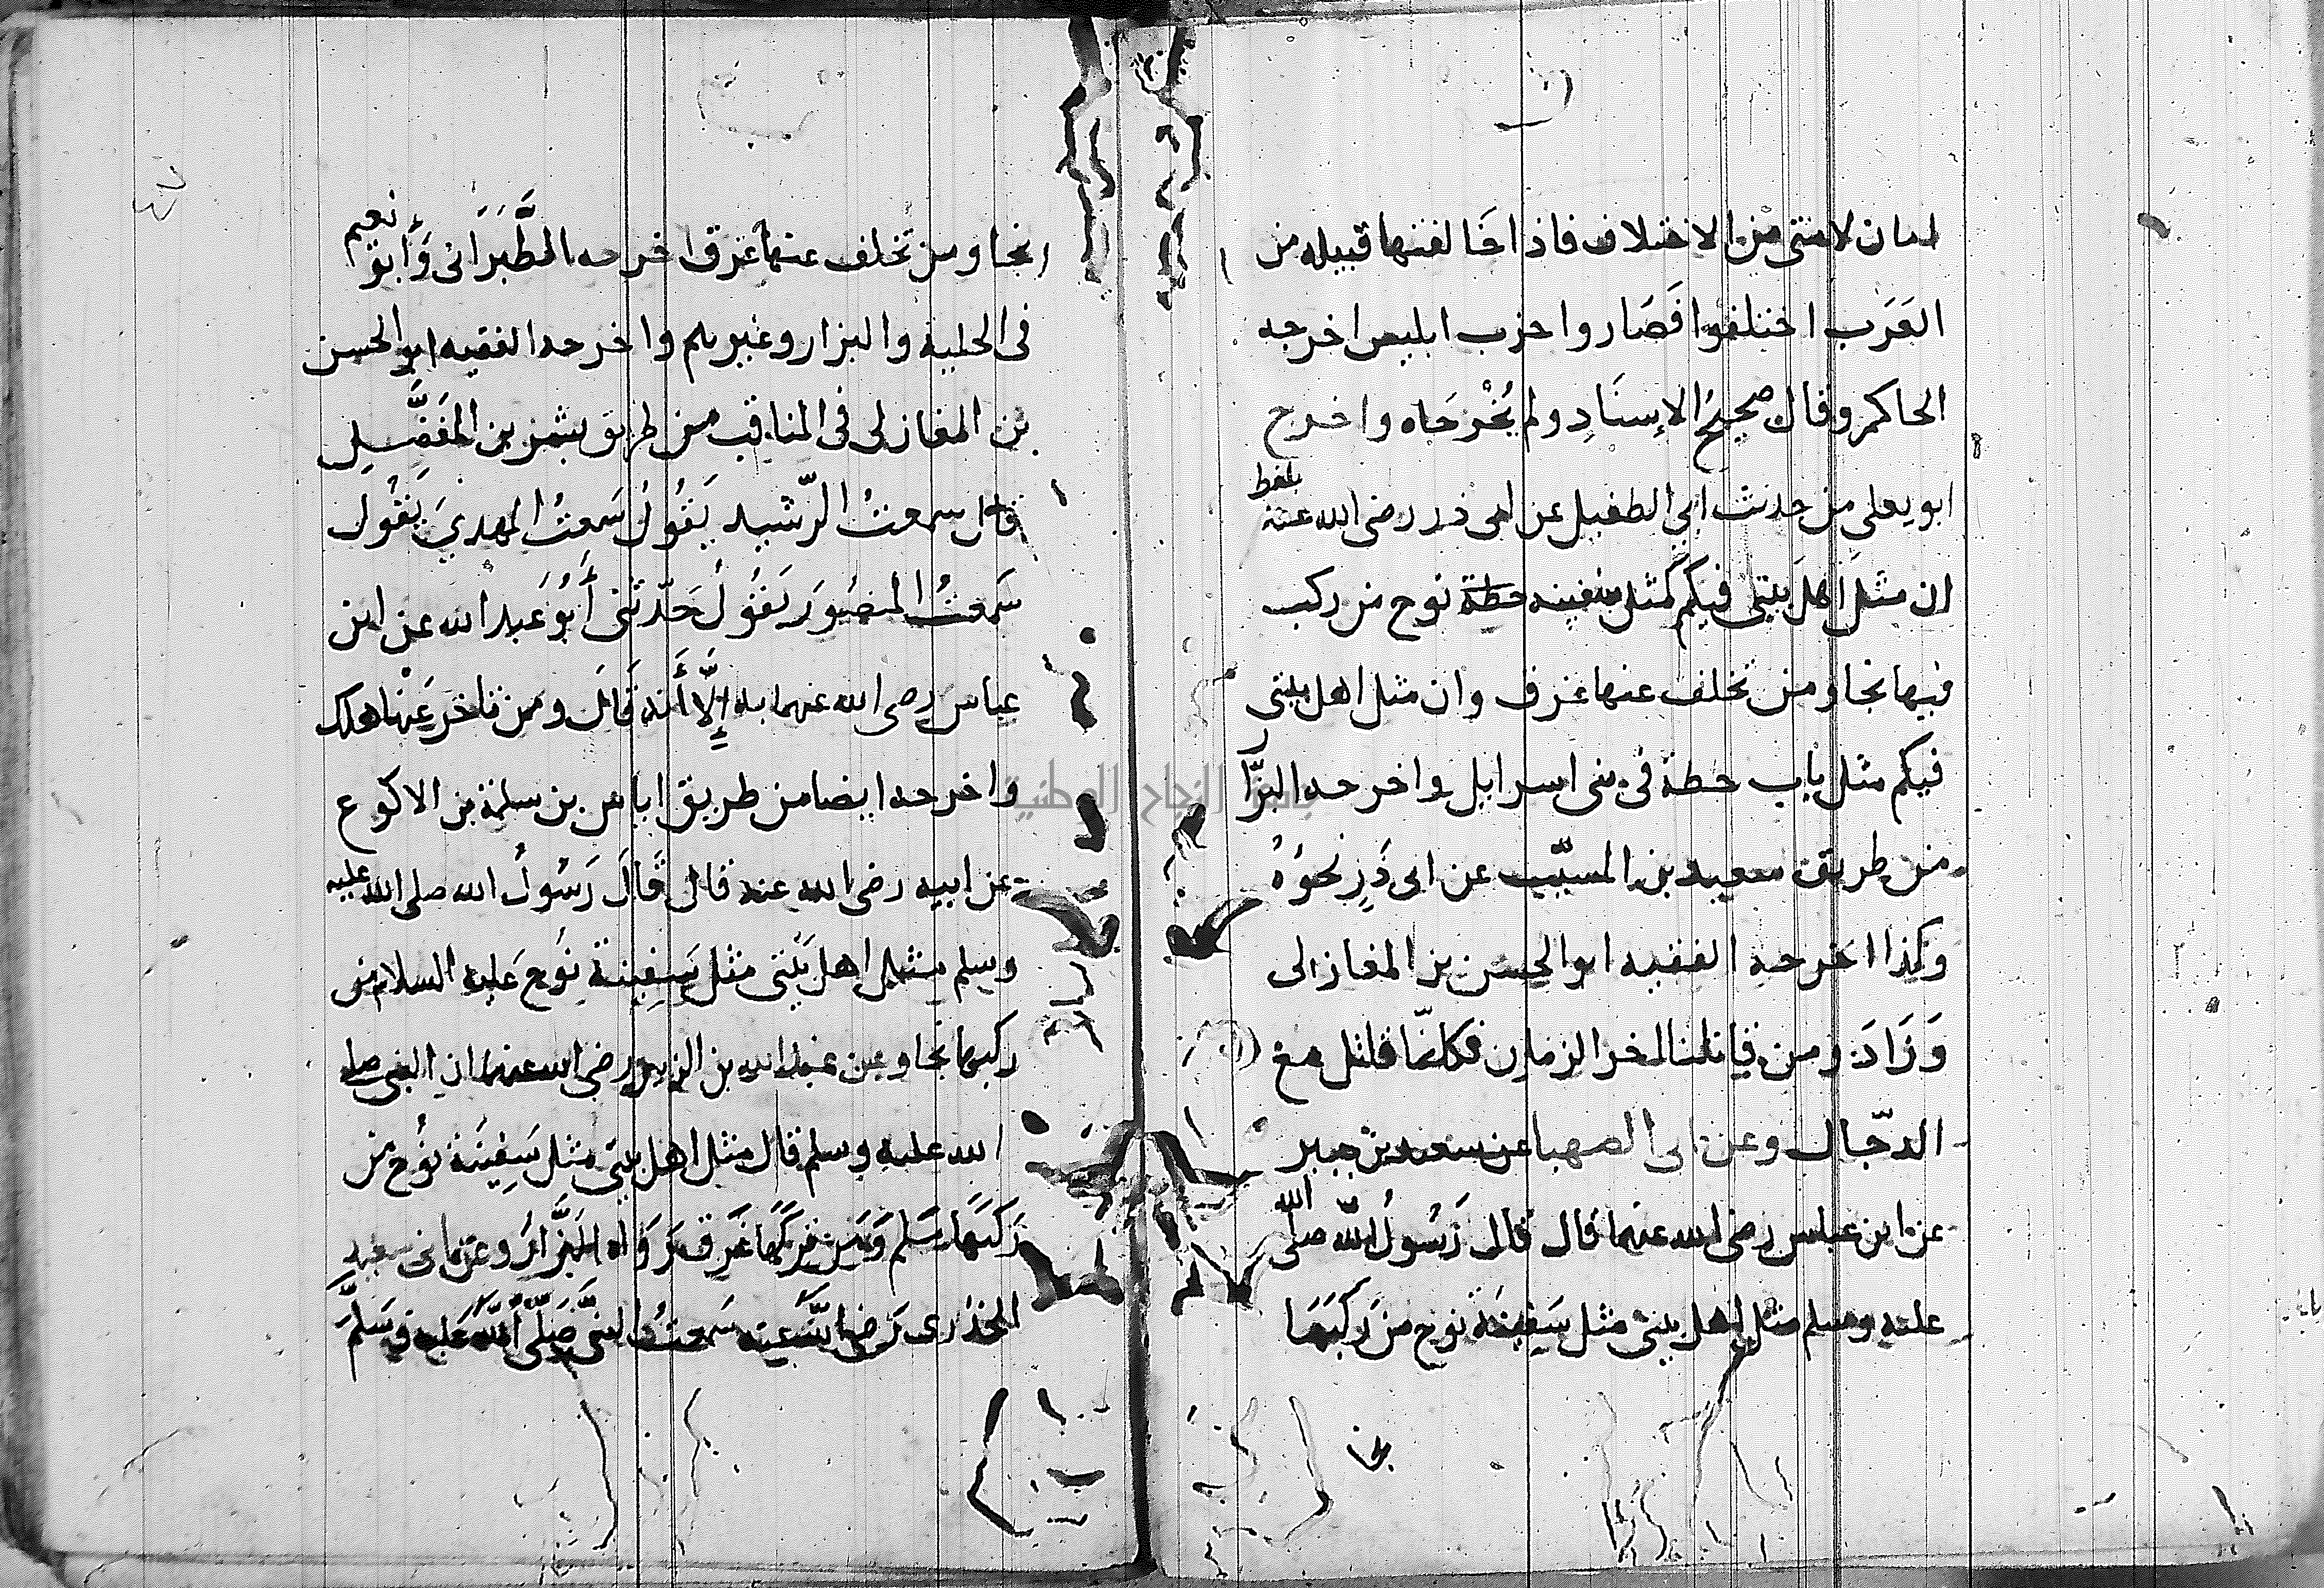 امان لامتى من الاختلاف فاذا خالفتها قبيله من
العَرَب اختلفوا فَصَاروا حزب ابليس اخرجه
الحاكم وقال صحيحُ الإسنَادِ ولم يُخْرجَاه واخرج
ابو يعلى من حديث ابي الطفيل عن ابى ذر رضى الله عنه بلفظ
ان مثلَ اهلَ بيتى فيكم كمثل سفينه حطة نوح من ركب
فيها نجا ومن تخلف عنها غرق وان مثل اهل بيتى
فيكم مثل باب حطة فى بنى اسرايل واخرجه البزَّار
من طريق سعيد بن المسيّب عن ابى ذَرٍ نحوَهُ
وكذا اخرجه الفقيه ابو الحسن بن المغازلى
وَزَادَ ومن قاتلنا اخر الزمان فكانمّا قاتل مع
الدجّال وعن ابى الصهبا عن سعيد بن جبير
عن ابن عباس رضى الله عنهما قال قال رَسُولُ اللّه صلى الله
عليه وسلم مثل اهل بيتى مثل سَفِينَة نوح من رَكبَهَا
بخا
نجا ومن تخلف عنها غرق اخرجه الطَّبَرَانى وَأبو نعيم
فى الحلية والبزار وغيرهم واخرجه الفقيه ابو الحسن
بن المغازلى فى المناقب من طريق بشر بن المفَضَّل
قال سمعتُ الرّشيد يَقُولُ سَمعتُ المهديَ يَقُول
سَمعتُ المنصُورَ يَقُولُ حَدّثنى أَبُو عَبد الله عن ابن
عباس رضى الله عنهما به إلَّا أَنه قَالَ ومن تاخر عَنها هلك
واخرجه ايضا من طريق اياس بن سلمة بن الاكوع
عن ابيه رضى الله عنه قال قَالَ رَسُولُ الله صلى الله عليه
وسلم مثل اهل بَيْتى مثل سَفِينة نوُح عَليه السلام من
ركبها نجا وعن عبد الله بن الزبير رضى الله عنهما ان النبى صلى
الله عليه وسلم قال مثل اهل بيتى مثل سَفِينَة نوُح من
رَكبَهَا سَلم وَمَن تركهَا غَرق رَوَاه البَزَّارُ وعن ابى سعيد
الخدْرى رَضىَ اللّه عنه سَمعتُ النبىَّ صَلّى اللّهُ عَليه وَسَلَّمَ